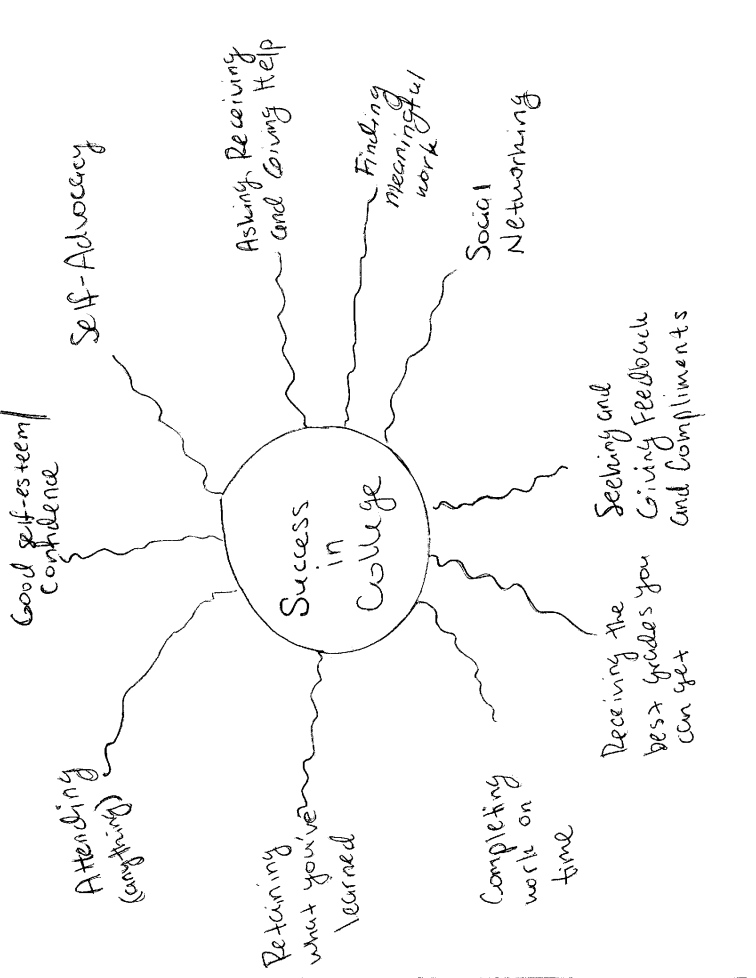 Success
in
College
Good self-esteem/
confidence
Self-Advocacy
Asking, Receiving
and Giving Help
Finding
meaningful
work
Social
Networking
Seeking and
Giving Feedback
and Compliments
Receiving the
best grades you
can get
Completing
work on
time
Retaining
what you've
learned
Attending
(anything)